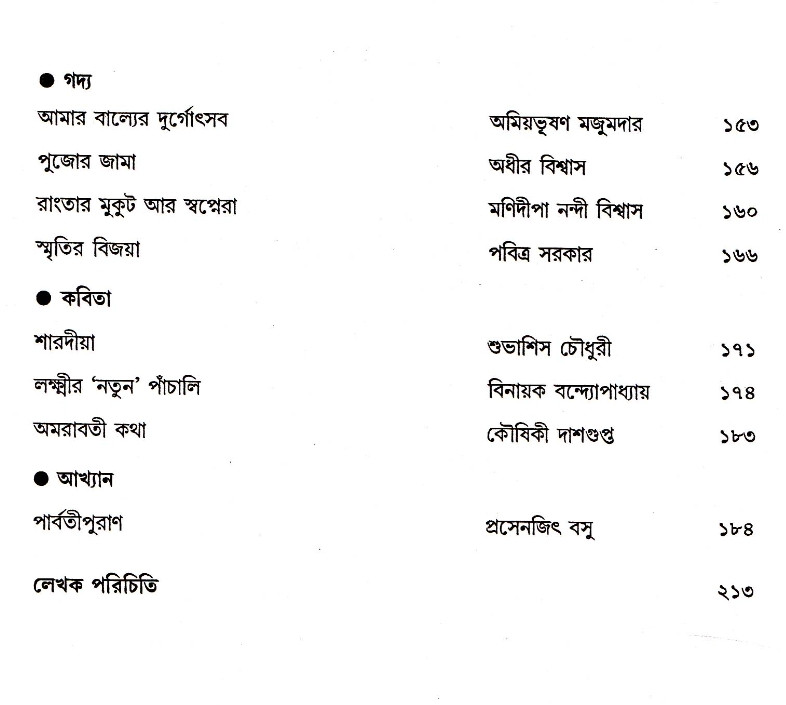 ● গদ্য
আমার বাল্যের দুর্গোৎসব অমিয়ভূষণ মজুমদার ১৫৩
পুজোর জামা অধীর বিশ্বাস ১৫৬
রাংতার মুকুট আর স্বপ্নেরা মণিদীপা নন্দী বিশ্বাস ১৬০
স্মৃতির বিজয়া পবিত্র সরকার ১৬৬
● কবিতা
শারদীয়া শুভাশিস চৌধুরী ১৭১
লক্ষ্মীর ‘নতুন’ পাঁচালি বিনায়ক বন্দ্যোপাধ্যায় ১৭৪
অমরাবতী কথা কৌষিকী দাশগুপ্ত ১৮৩
● আখ্যান
পার্বতীপুরাণ প্রসেনজিৎ বসু ১৮৪
লেখক পরিচিতি ২১৩